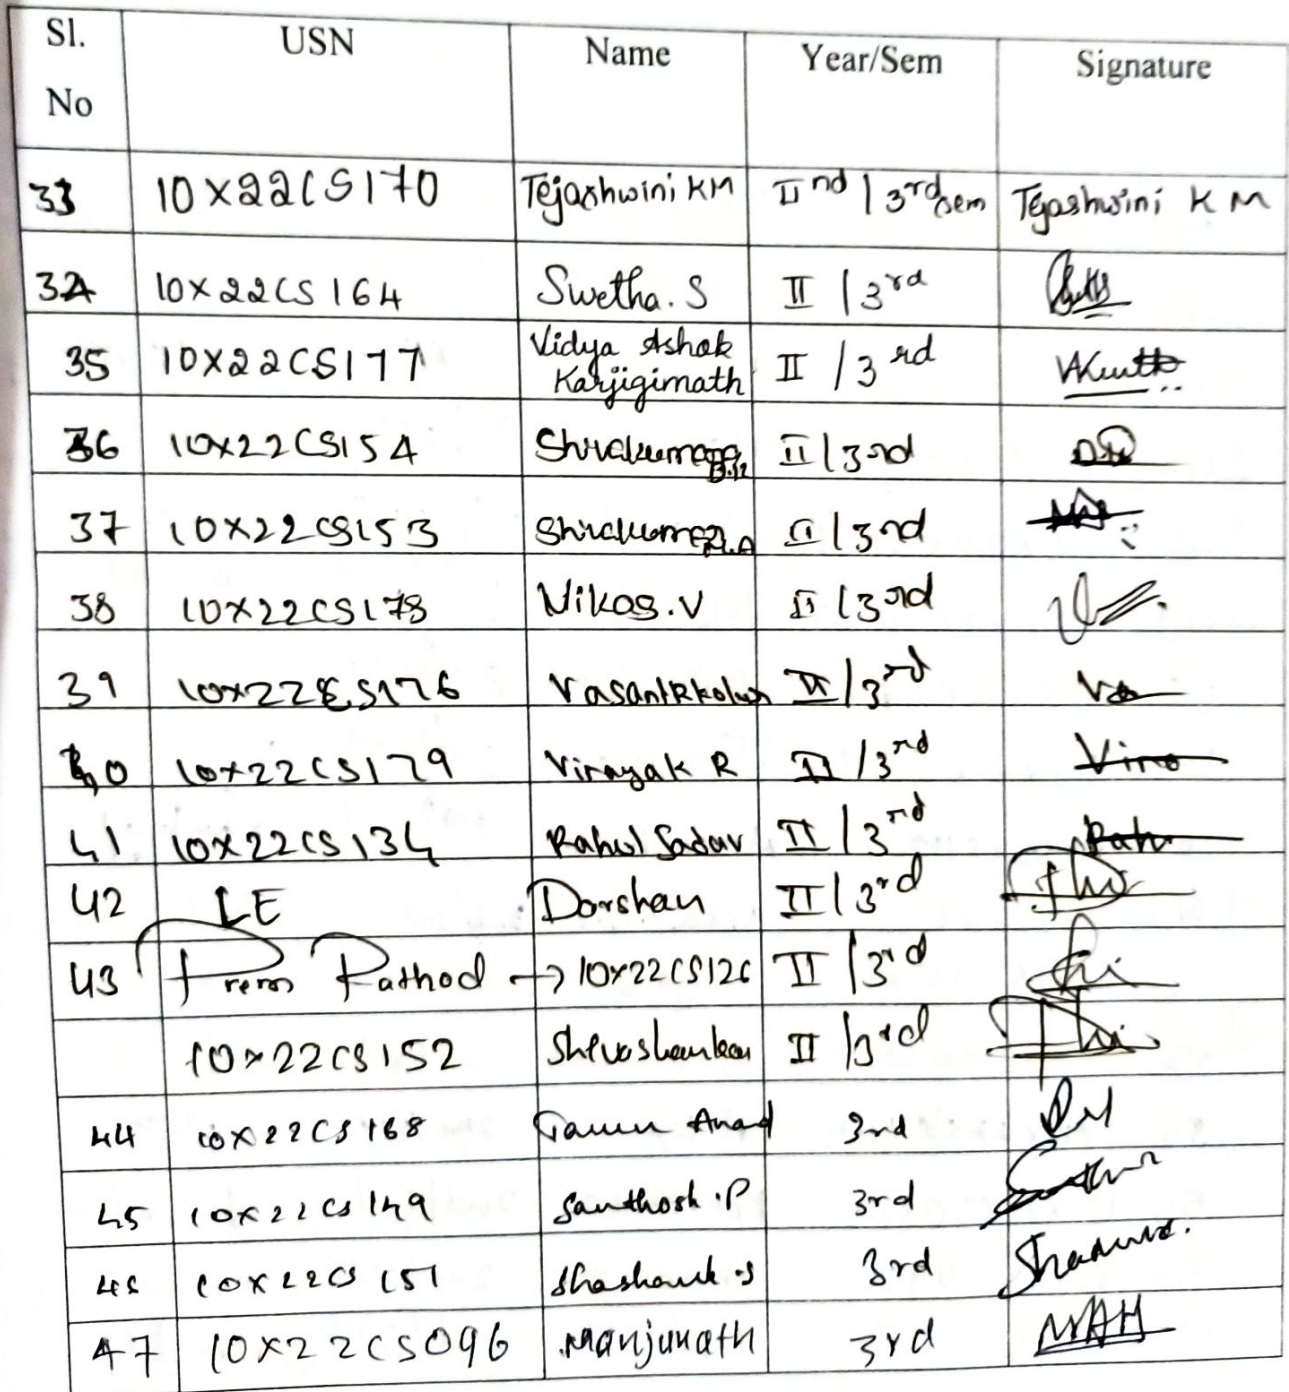 Sl. No USN Name Year/Sem Signature
33 10X22CS170 Tejashwini KM IInd / 3rd sem Tejashwini K M
34 10X22CS164 Swetha. S II / 3rd
35 10X22CS177 Vidya Ashok Karjigimath II / 3rd
36 10X22CS154 Shivakumara II / 3rd
37 10X22CS153 II / 3rd
38 10X22CS178 Vikas.V II / 3rd
39 10X22CS176 II / 3rd
40 10X22CS179 Vinayak R II / 3rd
41 10X22CS134 Rahul Jadav II / 3rd
42 LE Darshan II / 3rd
43 Prem Rathod → 10X22CS126 II / 3rd
10X22CS152 Shivashankar II / 3rd
44 10X22CS168 Tarun Anad 3rd
45 10X22CS149 Santhosh.P 3rd
46 10X22CS151 Shashank.s 3rd
47 10X22CS096 Manjunath 3rd